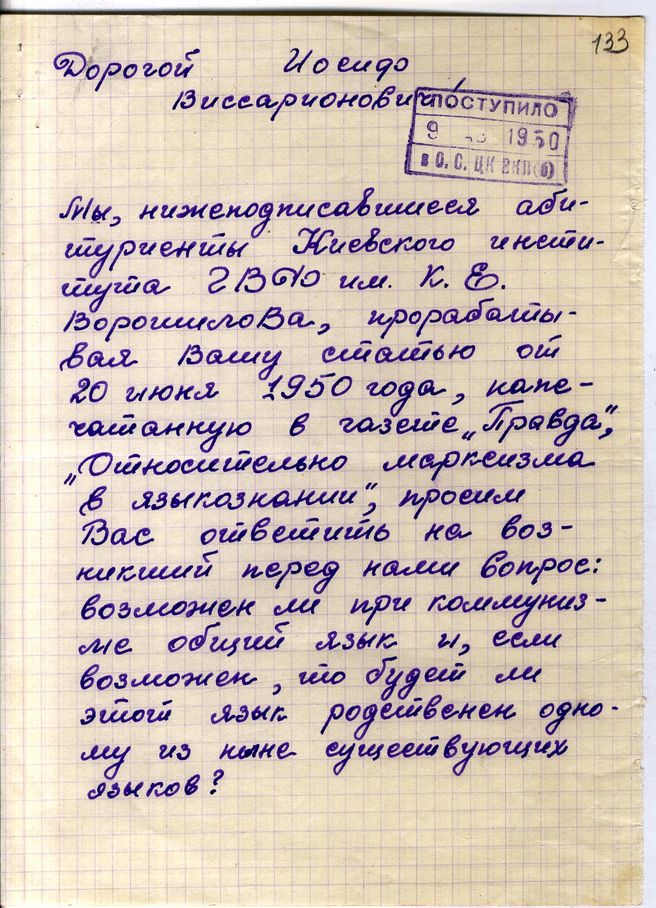 133
Дорогой Иосиф
Виссарионович!
ПОСТУПИЛО
9 1950
в О. С. ЦК ВКП(б)
Мы, нижеподписавшиеся аби-
туриенты Киевского инсти-
тута ГВФ им. К. Е.
Ворошилова, прорабаты-
вая Вашу статью от
20 июня 1950 года, напе-
чатанную в газете „Правда",
„Относительно марксизма
в языкознании", просим
Вас ответить на воз-
никший перед нами вопрос:
возможен ли при коммуниз-
ме общий язык и, если
возможен, то будет ли
этот язык родственен одно-
му из ныне существующих
языков?